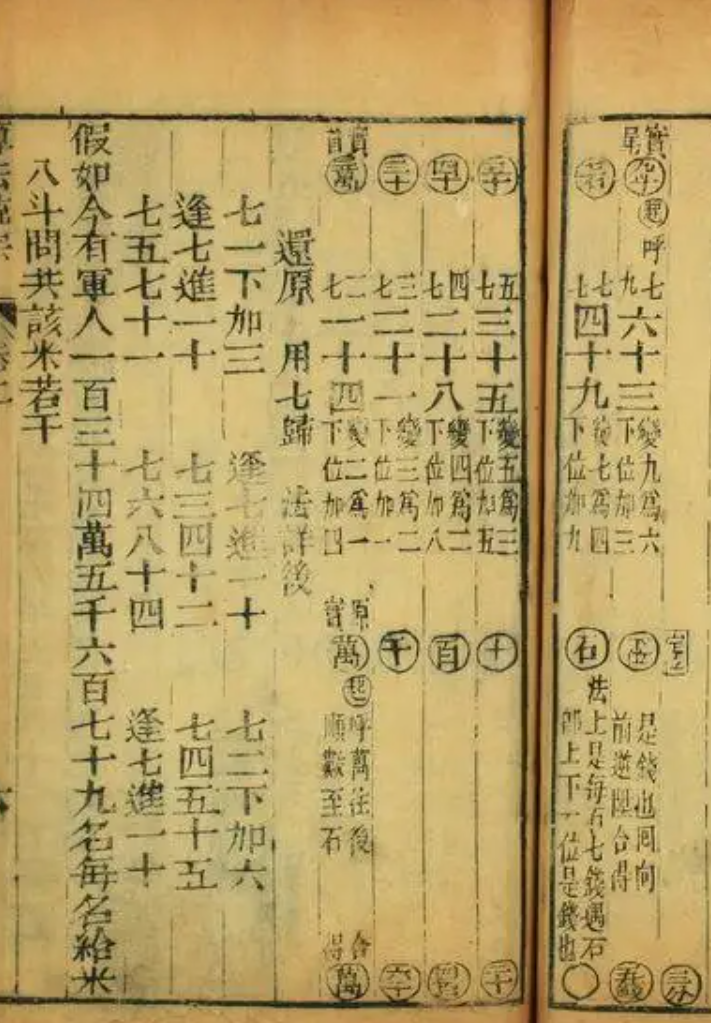 實尾 起 呼 七九 六十三 變九爲六 下位加三 是錢也囘向 前 合得 三分
七七 四十九 變七爲四 下位加九 石 法上是每石七錢遇石 卽上下一位是錢也 〇
五七 三十五 變五爲三 下位加五 十 二十
四七 二十八 變四爲二 下位加八 百
三十 三七 二十一 變三爲二 下位加一 千 六千
實首 二七 一十四 變二爲一 下位加四 原實 萬 起 呼萬往後 順數至石 合得 萬
還原 用七歸 法詳後
七一下加三 逢七進一十 七二下加六
逢七進一十 七三四十二 七四五十五
七五七十一 七六八十四 逢七進一十
假如今有軍人一百三十四萬五千六百七十九名每名給米
八斗問共該米若干